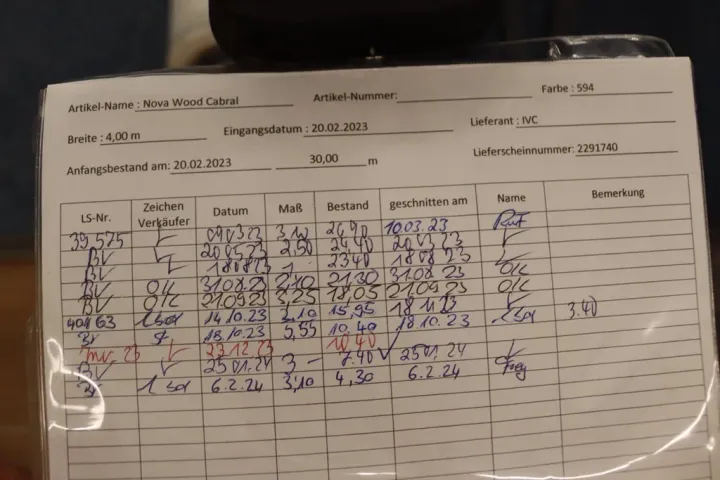 Artikel-Name : Nova Wood Cabral Artikel-Nummer: Farbe : 594
Breite : 4,00 m Eingangsdatum : 20.02.2023 Lieferant : IVC
Anfangsbestand am: 20.02.2023 30,00 m Lieferscheinnummer: 2291740
LS-Nr. Zeichen Verkäufer Datum Maß Bestand geschnitten am Name Bemerkung
39 575 10.03.23
BV 2,50 24,40 20.03.23
BV 18.08.23 1 - 23,40 18.08.23
BV OK 31.08.23 2,10 21,30 31.08.23 OK
BV OK 21.09.23 3,25 18,05 21.09.23 OK
404163 14.10.23 2,10 15,95 3.40
BV 18.10.23 5,55 10,40 18.10.23
Inv. 23 10,40
BV 25.01.24 3 - 7.40 25.01.24
6.2.24 3,10 4,30 6.2.24